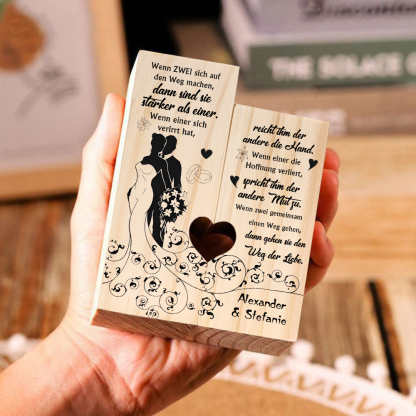 Wenn ZWEI sich auf
den Weg machen,
dann sind sie
stärker als einer.
Wenn einer sich
verirrt hat,
reicht ihm der
andere die Hand.
Wenn einer die
Hoffnung verliert,
spricht ihm der
andere Mut zu.
Wenn zwei gemeinsam
einen Weg gehen,
dann gehen sie den
Weg der Liebe.
Alexander
& Stefanie
THE SOLACE OF